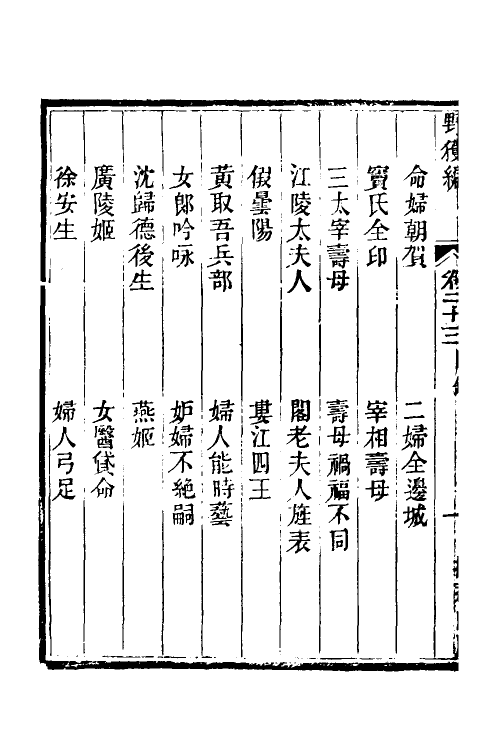 野獲編 卷二十三 目錄 一
命婦朝賀 二婦全邊城
竇氏全印 宰相壽母
三太宰壽母 壽母禍福不同
江陵太夫人 閣老夫人旌表
假曇陽 婁江四王
黃取吾兵部 婦人能時藝
女郎吟咏 妒婦不絕嗣
沈歸德後生 燕姬
廣陵姬 女醫貸命
徐安生 婦人弓足